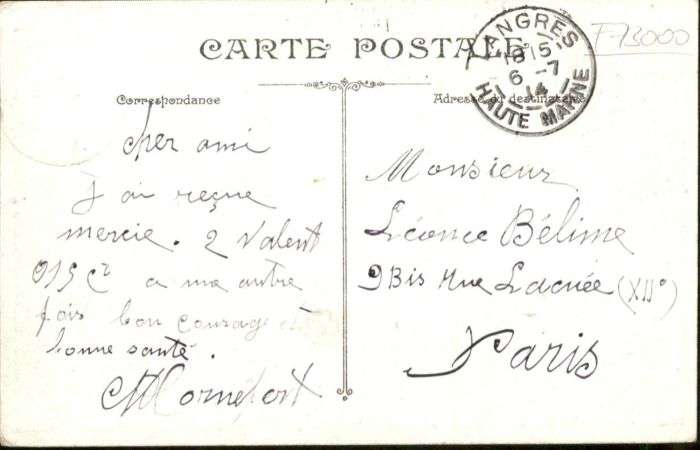 CARTE POSTALE
F-73000
LANGRES
1815
6 -7
14
HAUTE MARNE
Correspondance
Adresse du destinataire
Cher ami
J ai reçue
mercie. 2 valent
015 c² a une autre
fois bon courage et
bonne santé.
Monsieur
Léonce Bélime
9 Bis Rue Lacuée (XIIº)
Paris